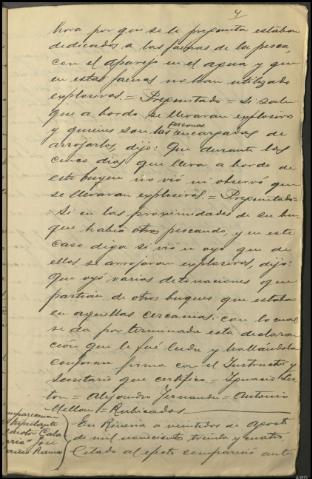 4
hora por que se le pregunta estaban
dedicados a las faenas de la pesca,
con el aparejo en el agua y que
en estas faenas no han utilizado
explosivos.= Preguntado = Si sabe
que a bordo se llevaran explosivos
y quienes son las personas encargadas de
arrojarlos, dijo: Que durante los
cinco dias que lleva a bordo de
este buque no vió ni observó que
se llevaran explosivos.= Preguntado=
Si en las proximidades de su bu-
que habia otros pescando, y en este
caso diga si vió u oyó que de
ellos se arrojaron explosivos, dijo:
Que oyó varias detonaciones que
partian de otros buques que estaban
en aquellas cercanias. Con lo cual
se da por terminada esta declara-
ción que le fué leida y hallándola
conforme firma con el Instructor y
Secretario que certifico = Ignacio
= Alejandro Fernandez = Antonio
Millan = Rubricados
En Rivera a veintidos de agosto
de mil novecientos treinta y cuatro.
Citado al efecto compareció ante